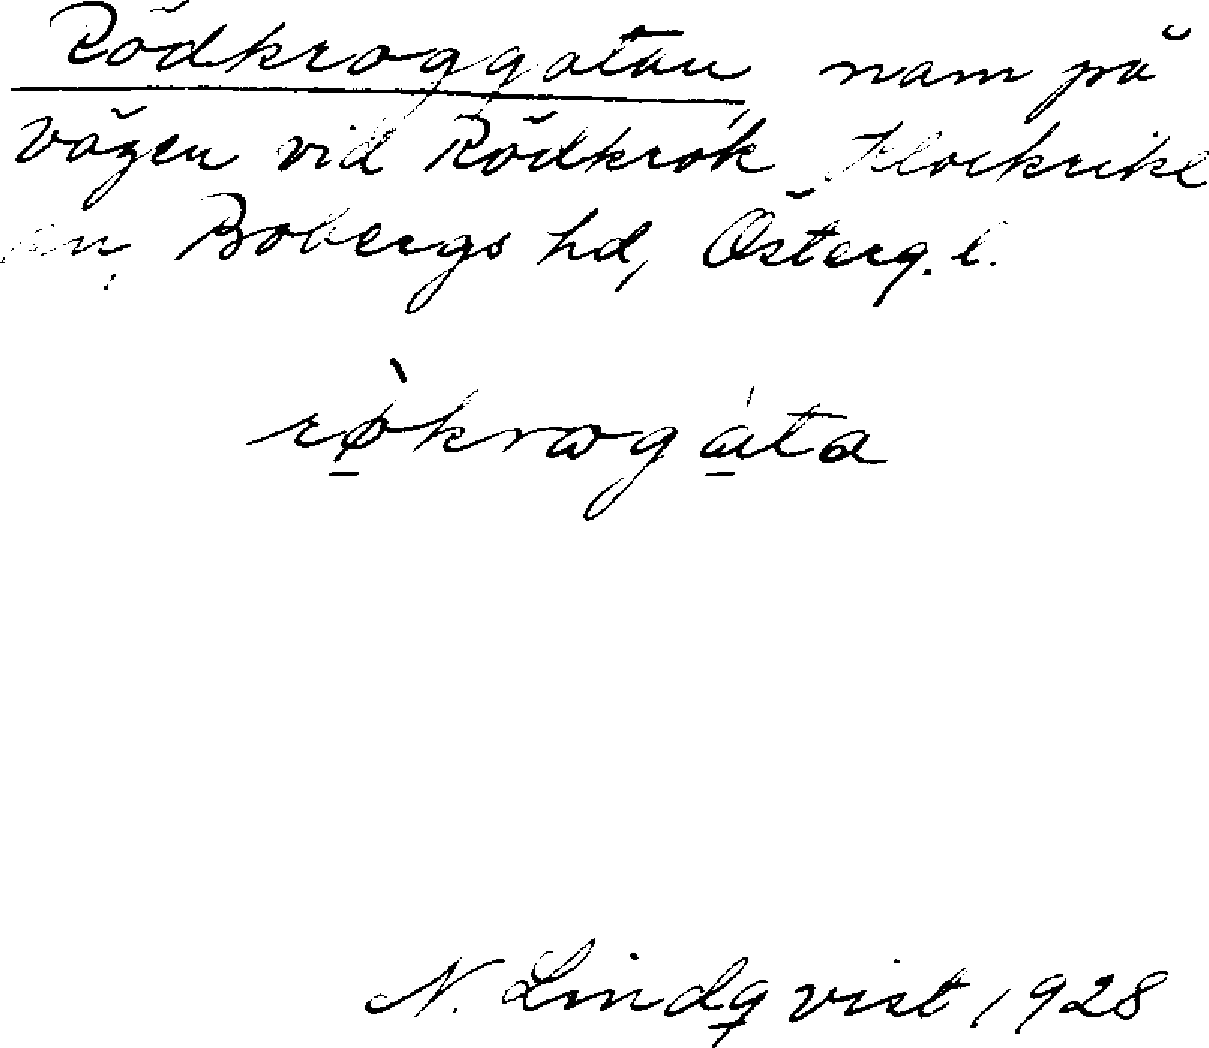 Rödkroggatan, namn på
vägen vid Rödkrok, Klockrike
sn, Bobergs hd, Österg. l.
N. Lindqvist 1928